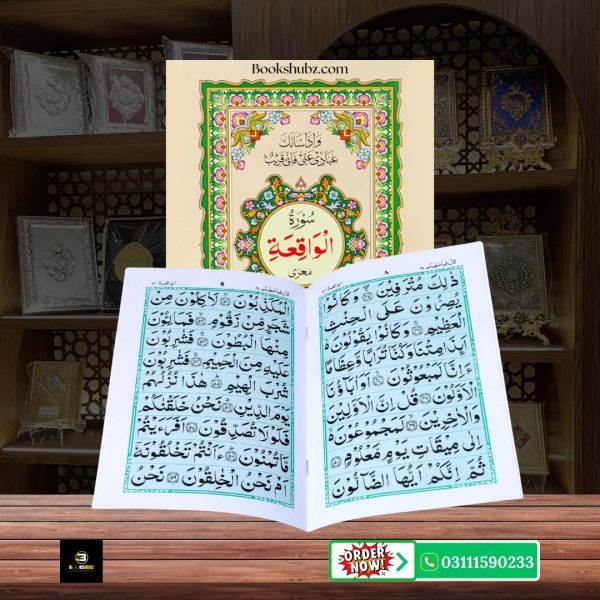 Bookshubz.com
وَاِذَا سَاَلَكَ
عِبَادِیْ عَنِّیْ فَاِنِّیْ قَرِیْبٌ
سُوْرَةُ
الْوَاقِعَةِ
معرٰی
٨
ذٰلِكَ مُتْرَفِیْنَ وَكَانُوْا
یُصِرُّوْنَ عَلَی الْحِنْثِ
الْعَظِیْمِ وَكَانُوْا یَقُوْلُوْنَ
اَىِٕذَا مِتْنَا وَكُنَّا تُرَابًا وَّعِظَامًا
ءَاِنَّا لَمَبْعُوْثُوْنَ اَوَاٰبَآؤُنَا
الْاَوَّلُوْنَ قُلْ اِنَّ الْاَوَّلِیْنَ
وَالْاٰخِرِیْنَ لَمَجْمُوْعُوْنَ
اِلٰی مِیْقَاتِ یَوْمٍ مَّعْلُوْمٍ
ثُمَّ اِنَّكُمْ اَیُّهَا الضَّآلُّوْنَ
٩
الْمُكَذِّبُوْنَ لَاٰكِلُوْنَ مِنْ
شَجَرٍ مِّنْ زَقُّوْمٍ فَمَالِـُٔوْنَ
مِنْهَا الْبُطُوْنَ فَشٰرِبُوْنَ
عَلَیْهِ مِنَ الْحَمِیْمِ فَشٰرِبُوْنَ
شُرْبَ الْهِیْمِ هٰذَا نُزُلُهُمْ
یَوْمَ الدِّیْنِ نَحْنُ خَلَقْنٰكُمْ
فَلَوْلَا تُصَدِّقُوْنَ اَفَرَءَیْتُمْ
مَّا تُمْنُوْنَ ءَاَنْتُمْ تَخْلُقُوْنَهٗ
اَمْ نَحْنُ الْخٰلِقُوْنَ نَحْنُ
BOOKSHUBZ
ORDER
NOW!
03111590233